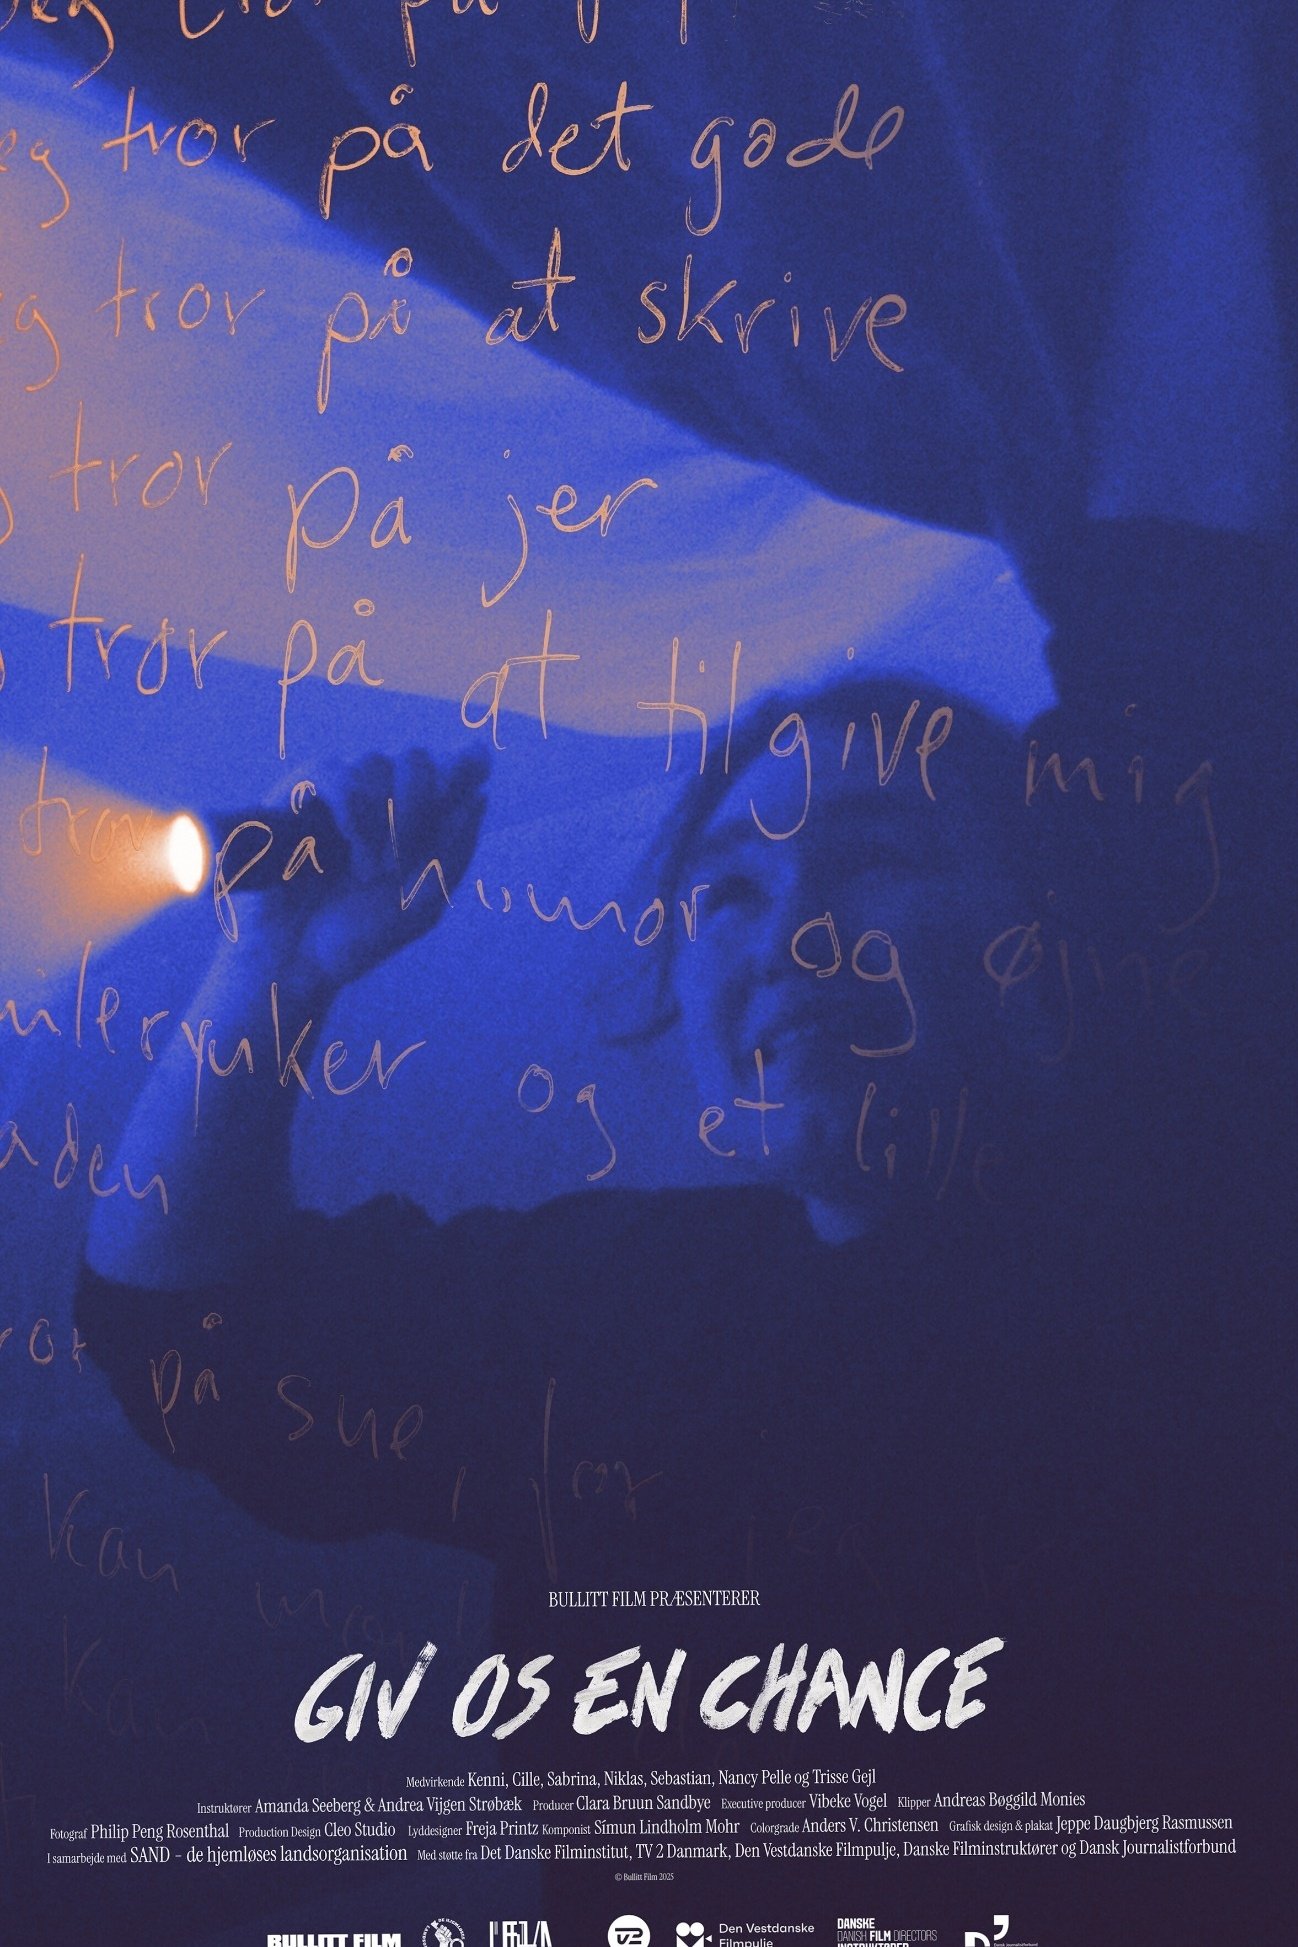 Jeg tror på
tror på det gode
tror på at skrive
tror på jer
tror på at tilgive mig
tror på humor og øjne
smilerynker og et lille
på Sue, for jeg
kan
kan
BULLITT FILM PRÆSENTERER
GIV OS EN CHANCE
Medvirkende Kenni, Cille, Sabrina, Niklas, Sebastian, Nancy Pelle og Trisse Gejl
Instruktører Amanda Seeberg & Andrea Vijgen Strøbæk Producer Clara Bruun Sandbye Executive producer Vibeke Vogel Klipper Andreas Bøggild Monies
Fotograf Philip Peng Rosenthal Production Design Cleo Studio Lyddesigner Freja Printz Komponist Símun Lindholm Mohr Colorgrade Anders V. Christensen Grafisk design & plakat Jeppe Daugbjerg Rasmussen
I samarbejde med SAND – de hjemløses landsorganisation Med støtte fra Det Danske Filminstitut, TV 2 Danmark, Den Vestdanske Filmpulje, Danske Filminstruktører og Dansk Journalistforbund
© Bullitt Film 2025
BULLITT FILM
2
Den Vestdanske
Filmpulje
DANSKE
DANISH FILM DIRECTORS
INSTRUKTØRER